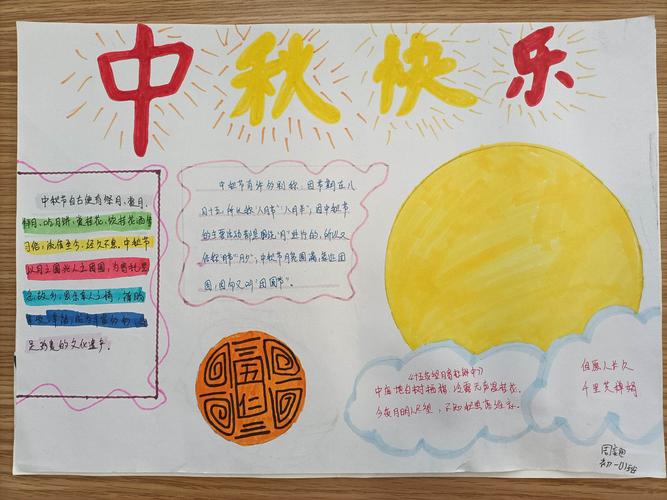 中秋快乐
中秋节自古便有祭月、赏月、
拜月、吃月饼、赏桂花、饮桂花酒等
习俗，流传至今，经久不息。中秋节
以月之圆兆人之团圆，为寄托思
念故乡，思念亲人之情，祈盼
丰收、幸福，成为丰富多彩、
足珍贵的文化遗产。
中秋节有许多别称：因节期在八
月十五，所以称“八月节”“八月半”；因中秋节
的主要活动都是围绕“月”进行的，所以又
俗称“月节”“月夕”；中秋节月亮圆满，象征团
圆，因而又叫“团圆节”。
五仁
《十五夜望月寄杜郎中》
中庭地白树栖鸦，冷露无声湿桂花。
今夜月明人尽望，不知秋思落谁家。
但愿人长久
千里共婵娟
初一